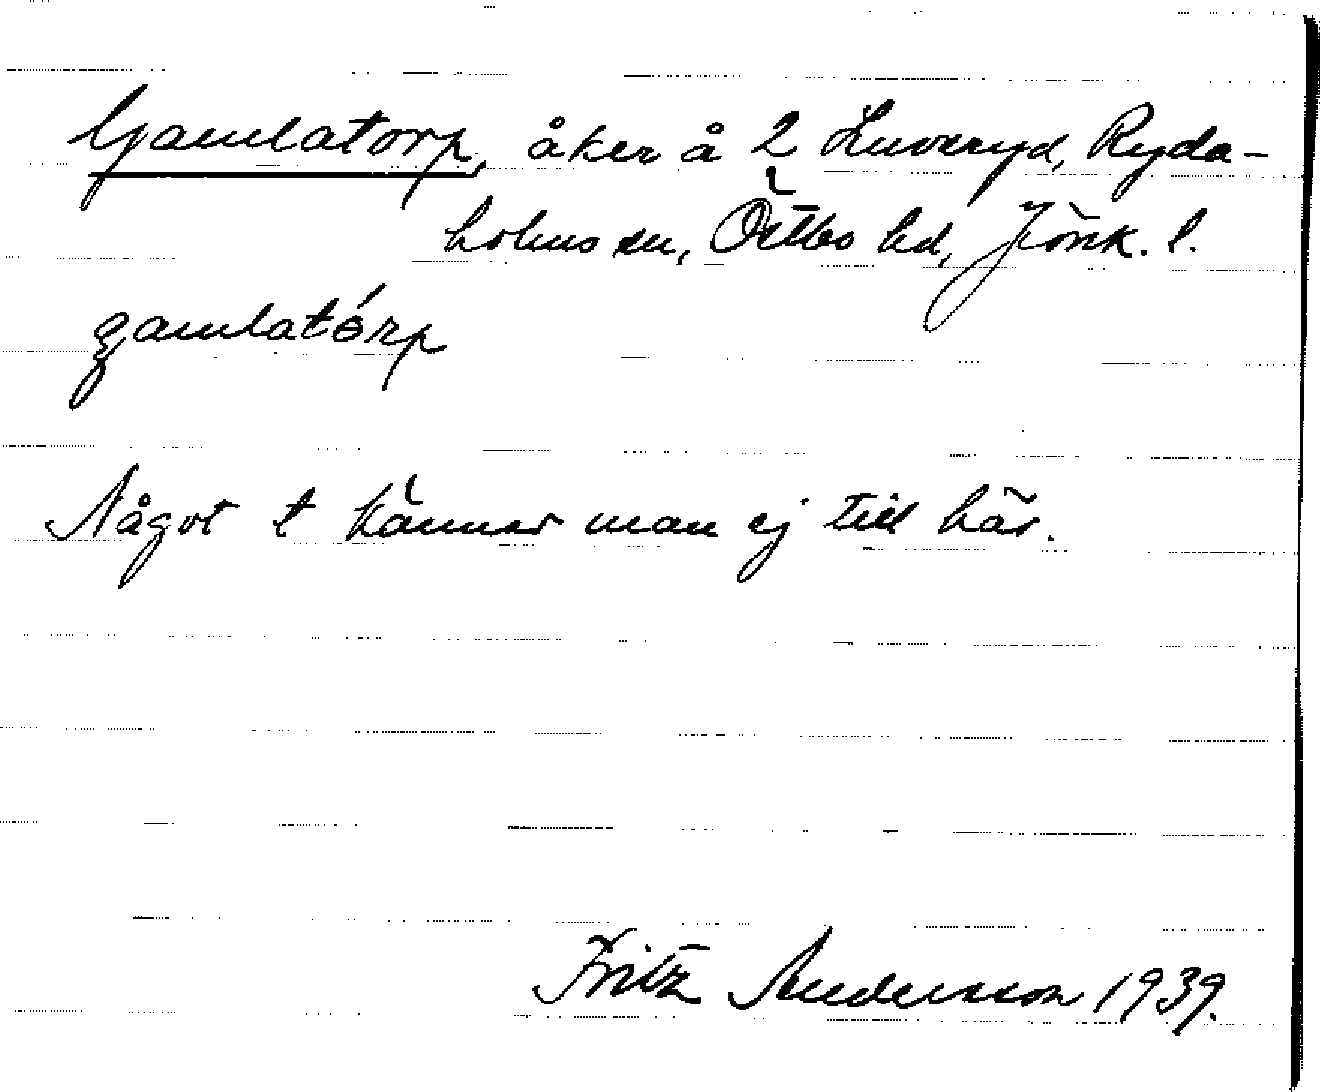 Gamlatorp, åker å 2 Luveryd, Ryda-
holms sn, Östbo hd, Jönk. l.
gamlatórp
Något t känner man ej till här.
Fritz Andersson 1939.